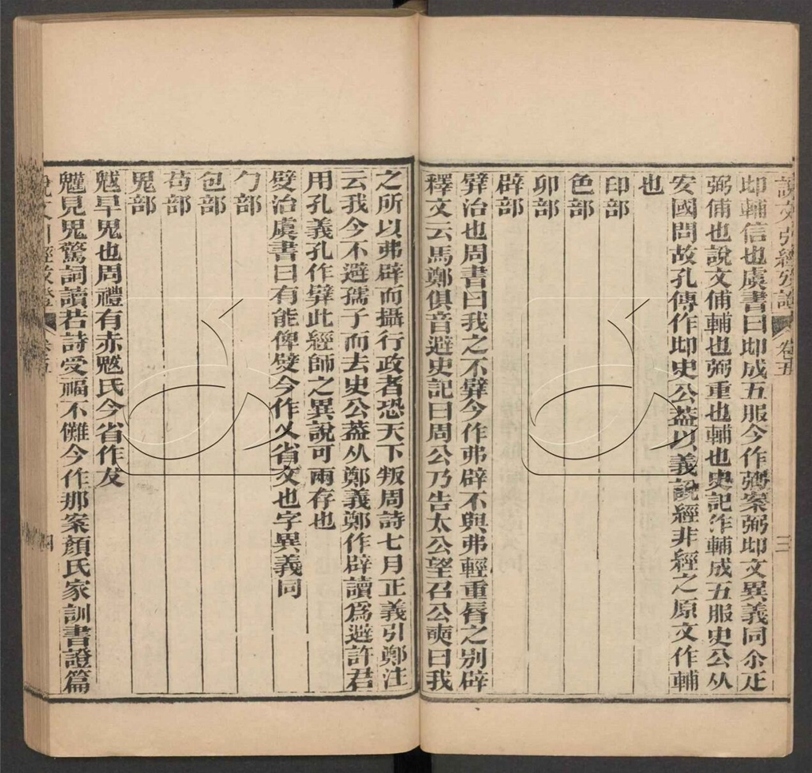 說文引經攷證 卷五 三
卶輔信也虞書曰卶成五服今作弼案弼卶文異義同尒疋
弼俌也說文俌輔也弼重也輔也史記作輔成五服史公从
安國問故孔傳作卶史公葢以義說經非經之原文作輔
也
印部
色部
卯部
辟部
䢃治也周書曰我之不䢃今作弗辟不與弗輕重脣之別辟
釋文云馬鄭俱音避史記曰周公乃告太公望召公奭曰我
之所以弗辟而攝行政者恐天下叛周詩七月正義引鄭注
云我今不避孺子而去史公葢从鄭義鄭作辟讀爲避許君
用孔義孔作䢃此經師之異說可兩存也
嬖治虞書曰有能俾嬖今作乂省文也字異義同
勹部
包部
茍部
鬼部
魃旱鬼也周禮有赤魃氏今省作犮
魖見鬼驚詞讀若詩受福不儺今作那案顏氏家訓書證篇
說文引經攷證 卷五 四